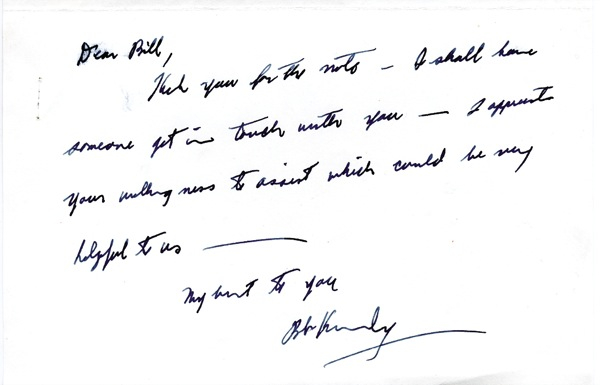 Dear Bill,
Thank you for the note — I shall have
someone get in touch with you — I appreciate
your willingness to assist which could be very
helpful to us —
My best to you
Bob Kennedy